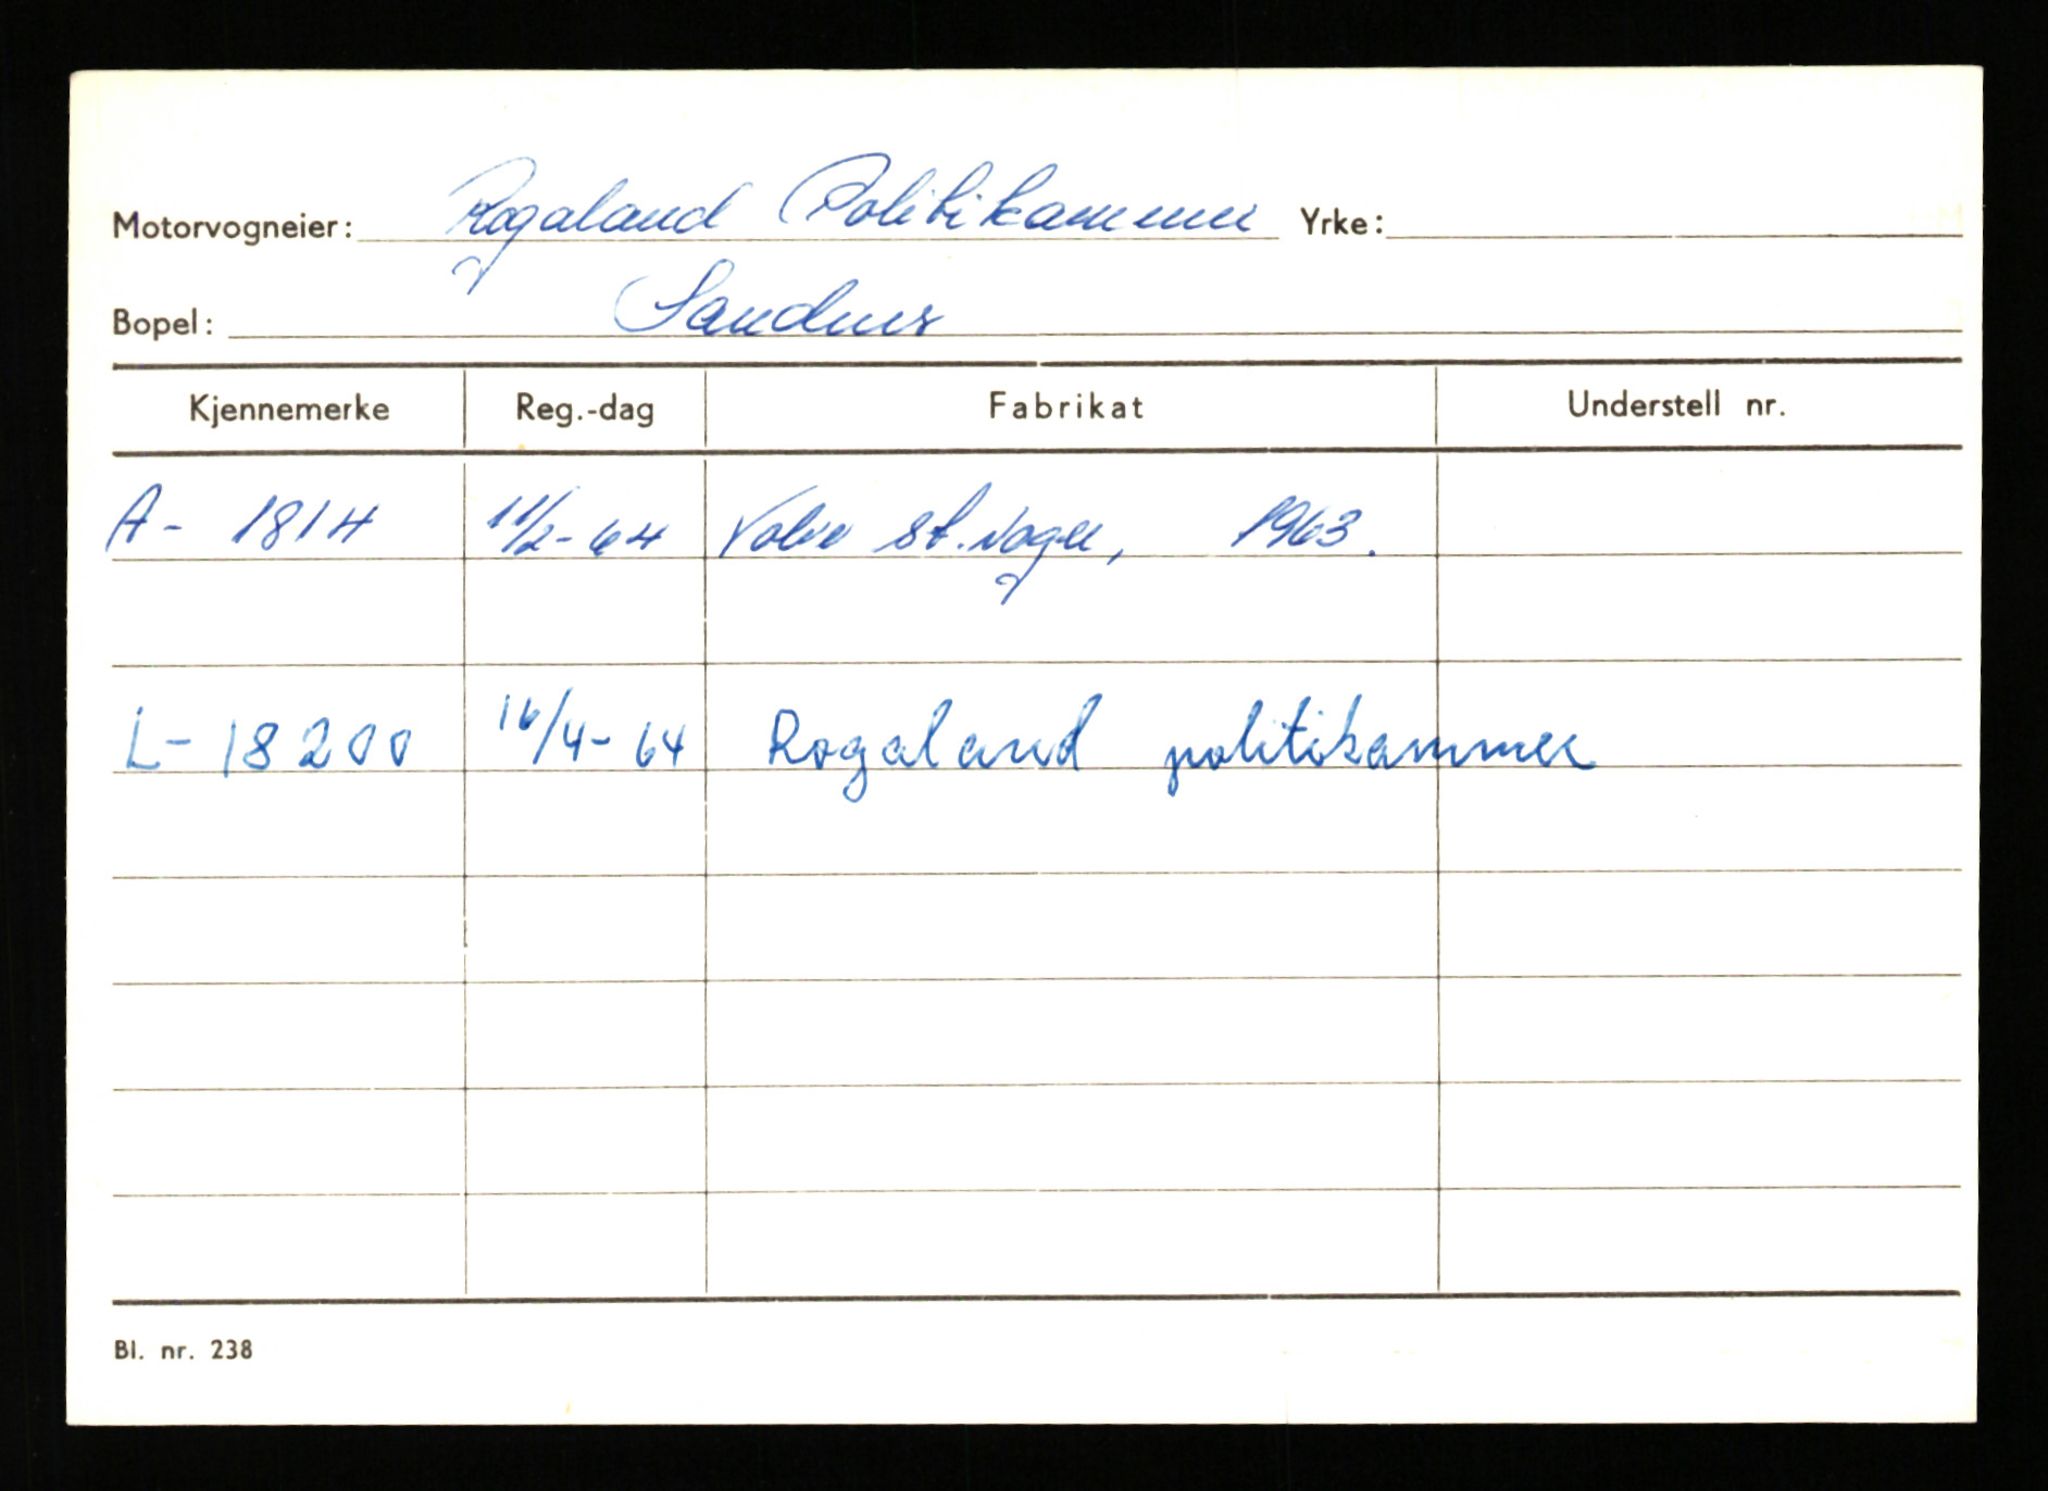 Motorvogneier: Rogaland Politikammer Yrke:
Bopel: Sandnes
Kjennemerke Reg.-dag Fabrikat Understell nr.
A- 1814 11/2-64 Volvo st.vogn, 1963.
L-18200 16/4-64 Rogaland politikammer
Bl. nr. 238